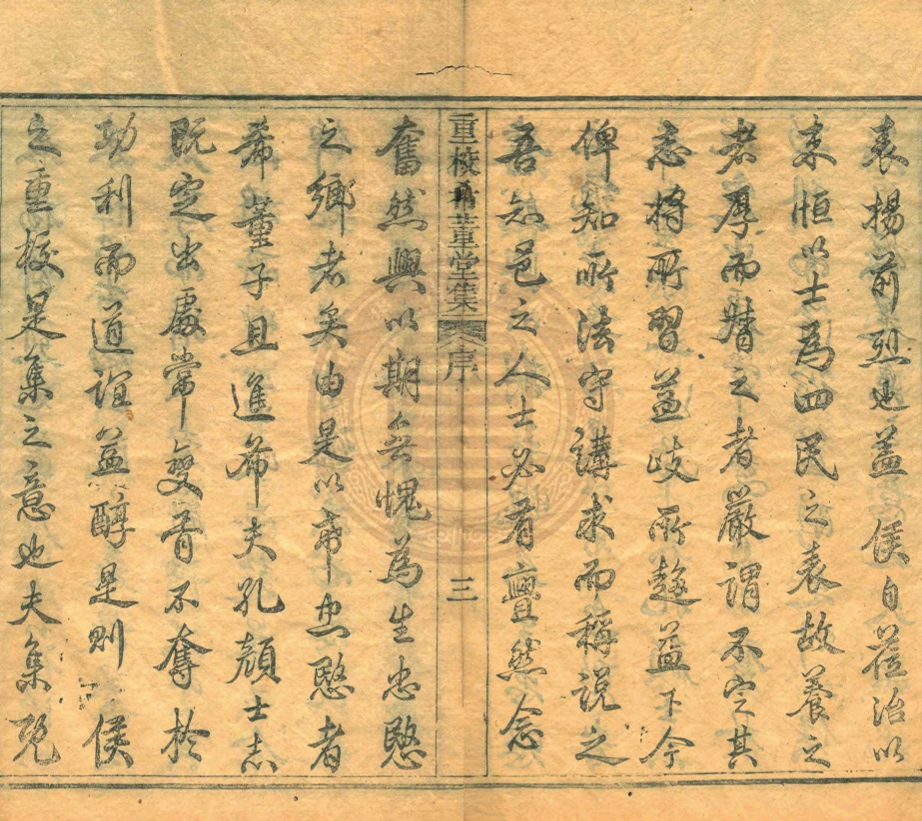 表揚前烈也蓋侯自莅治以
来恒以士為四民之表故養之
者厚而督之者嚴謂不定其
志將所習益歧所趨益下今
俾知所法守講求而稱說之
吾知邑之人士必有亹然念
重校希董堂集
序
三
奮然興以期無愧為生忠愍
之鄉者矣由是以希忠愍者
希董子且進希夫孔顏士志
既定出處常變胥不奪於
功利而道誼益醇是則侯
之重校是集之意也夫集既